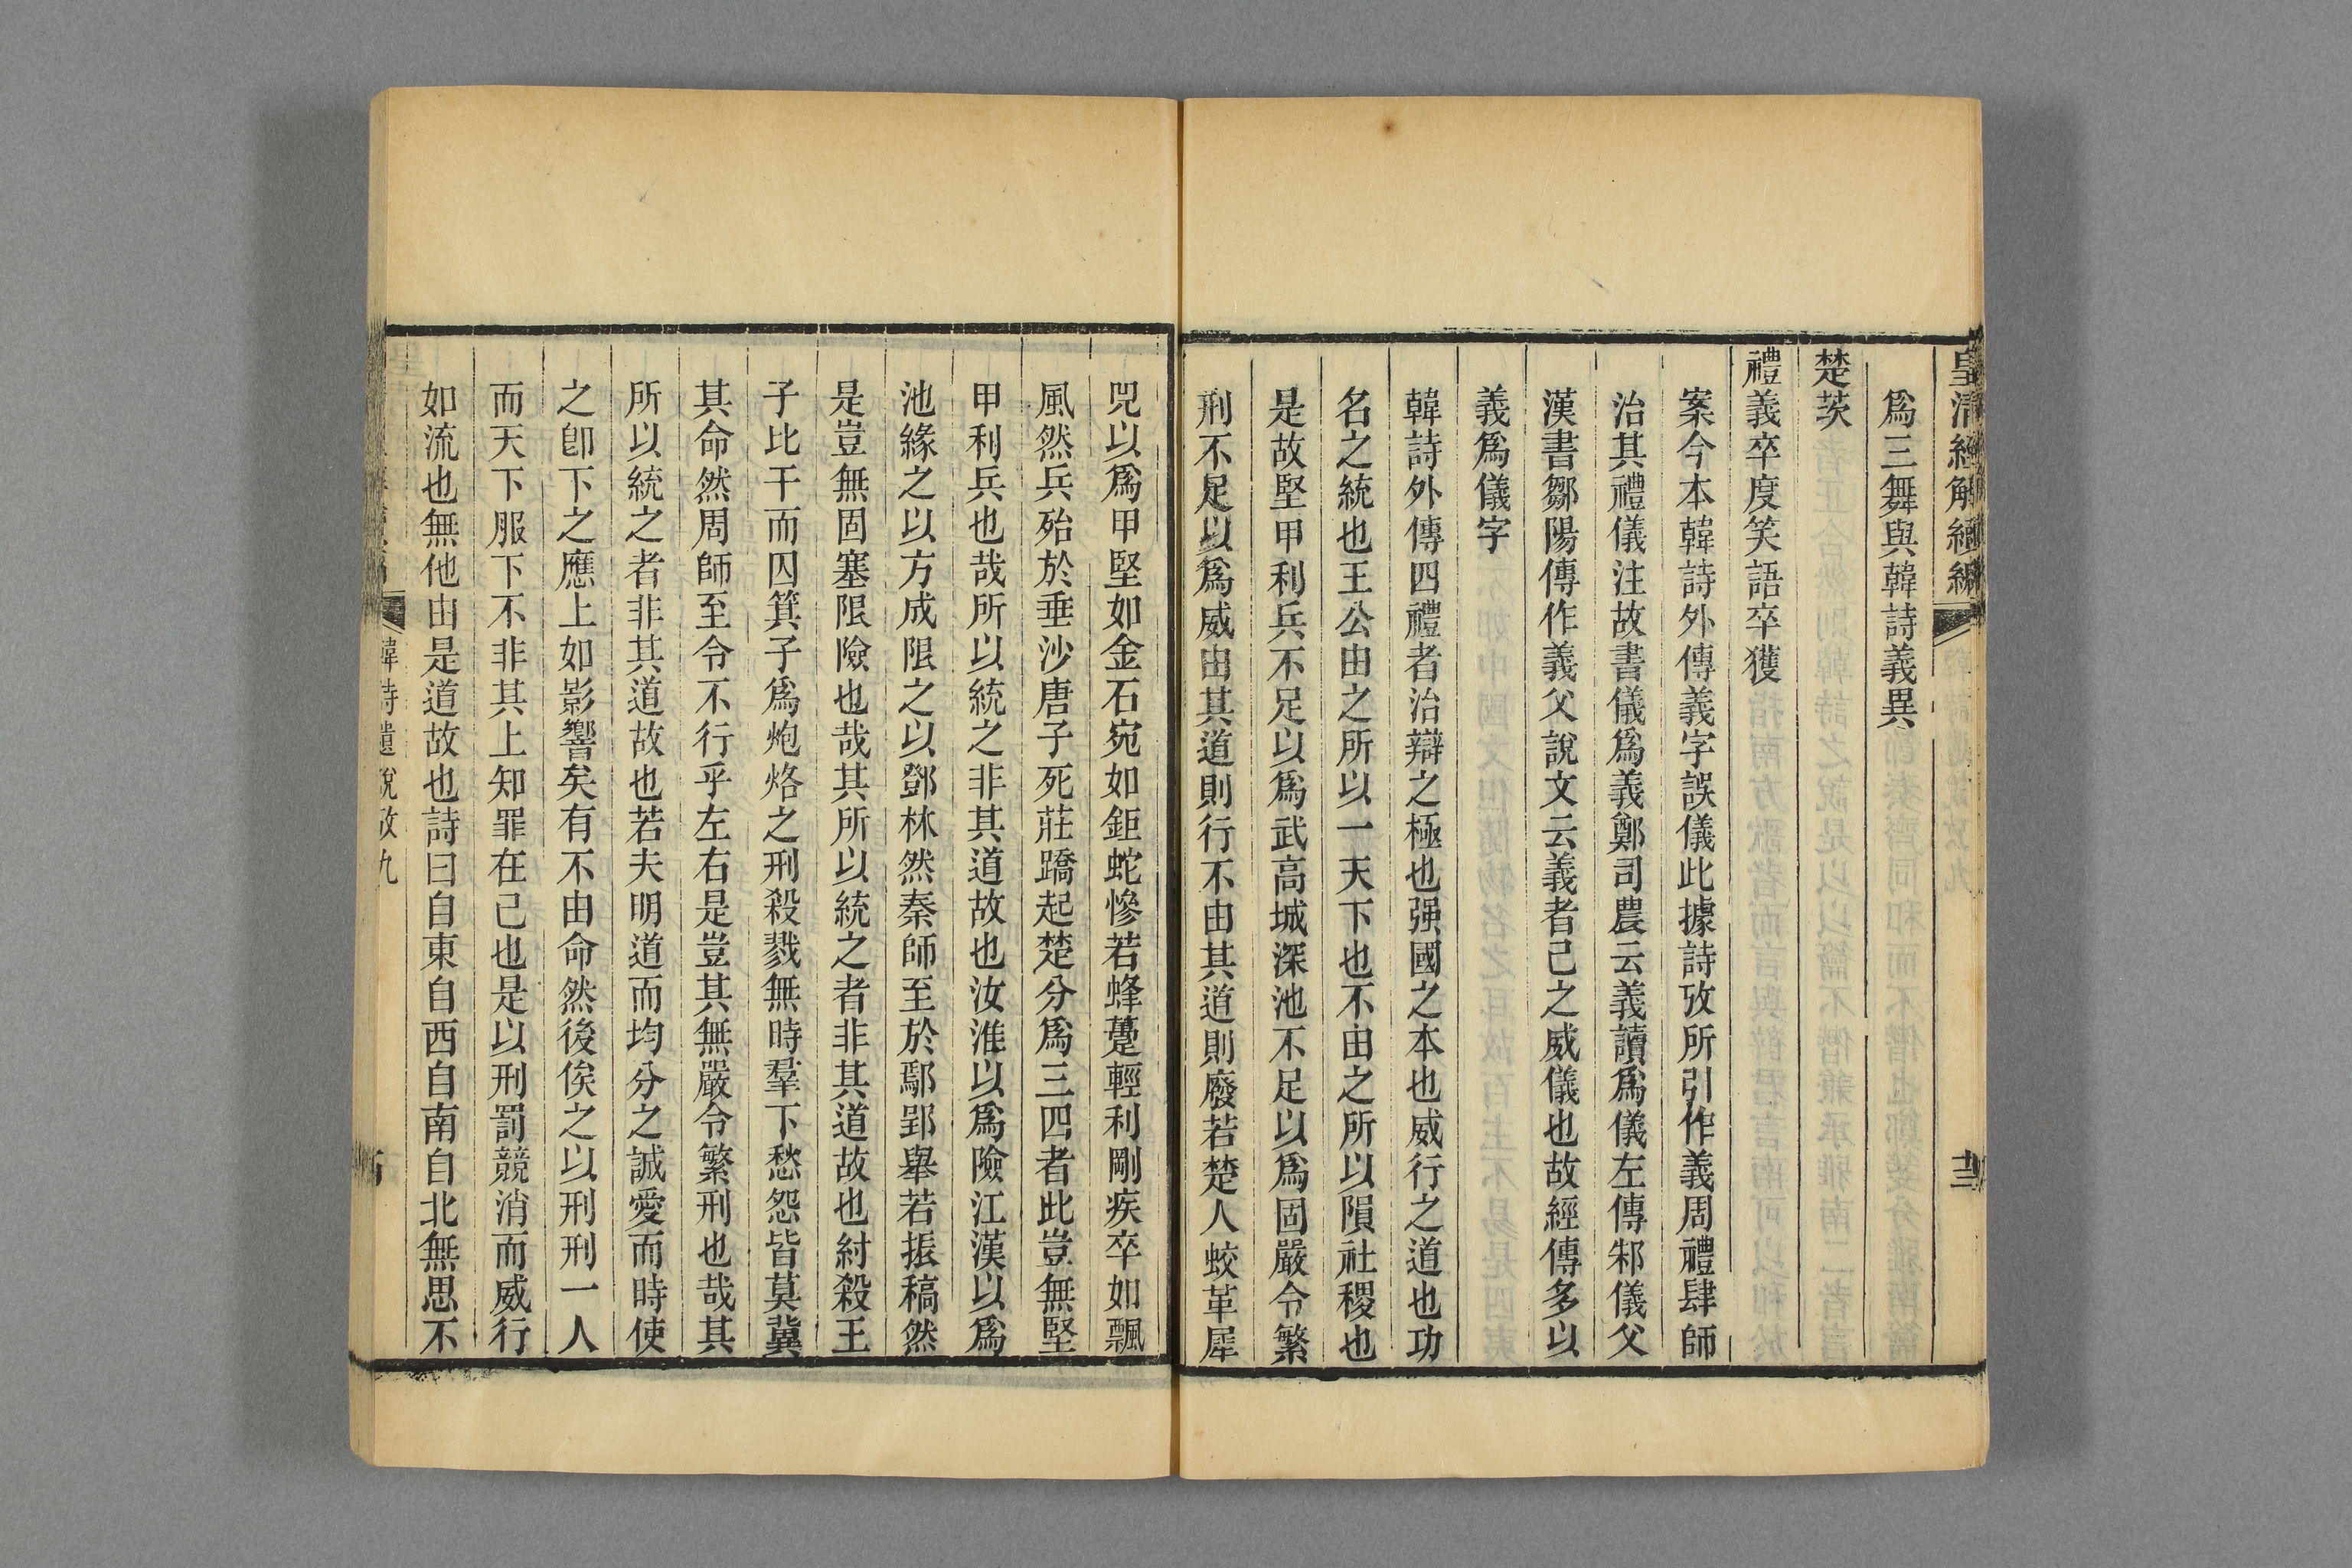 皇清經解續編
爲三舞與韓詩義異
楚茨
禮義卒度笑語卒獲
案今本韓詩外傳義字誤儀此據詩攷所引作義周禮肆師
治其禮儀注故書儀爲義鄭司農云義讀爲儀左傳邾儀父
漢書鄒陽傳作義父說文云義者己之威儀也故經傳多以
義爲儀字
韓詩外傳四禮者治辯之極也强國之本也威行之道也功
名之統也王公由之所以一天下也不由之所以隕社稷也
是故堅甲利兵不足以爲武高城深池不足以爲固嚴令繁
刑不足以爲威由其道則行不由其道則廢若楚人蛟革犀
兕以爲甲堅如金石宛如鉅蛇慘若蜂蠆輕利剛疾卒如飄
風然兵殆於垂沙唐子死莊蹻起楚分爲三四者此豈無堅
甲利兵也哉所以統之非其道故也汝淮以爲險江漢以爲
池緣之以方成限之以鄧林然秦師至於鄢郢舉若振稿然
是豈無固塞限險也哉其所以統之者非其道故也紂殺王
子比干而囚箕子爲炮烙之刑殺戮無時羣下愁怨皆莫冀
其命然周師至令不行乎左右是豈其無嚴令繁刑也哉其
所以統之者非其道故也若夫明道而均分之誠愛而時使
之卽下之應上如影響矣有不由命然後俟之以刑刑一人
而天下服下不非其上知罪在己也是以刑罰競消而威行
如流也無他由是道故也詩曰自東自西自南自北無思不
韓詩遺說攷九